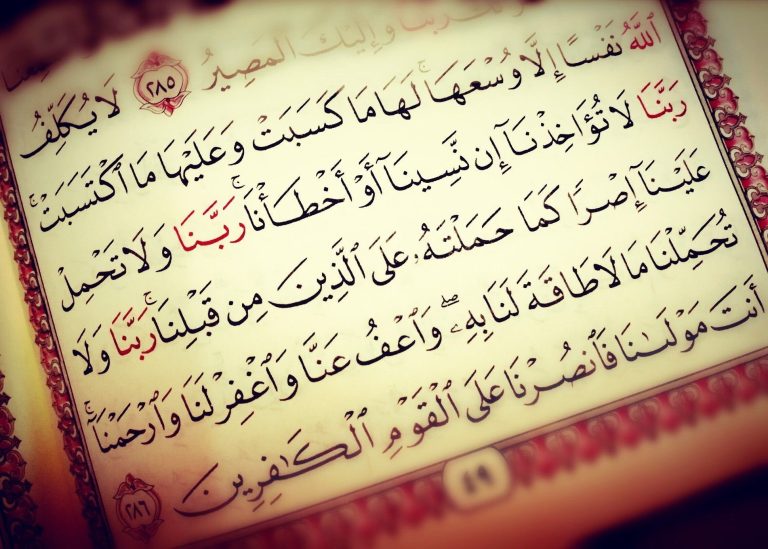 رَبَّنَا وَإِلَيْكَ ٱلْمَصِيرُ ٢٨٥ لَا يُكَلِّفُ
ٱللَّهُ نَفْسًا إِلَّا وُسْعَهَا ۚ لَهَا مَا كَسَبَتْ وَعَلَيْهَا مَا ٱكْتَسَبَتْ ۗ
رَبَّنَا لَا تُؤَاخِذْنَآ إِن نَّسِينَآ أَوْ أَخْطَأْنَا ۚ رَبَّنَا وَلَا تَحْمِلْ
عَلَيْنَآ إِصْرًا كَمَا حَمَلْتَهُۥ عَلَى ٱلَّذِينَ مِن قَبْلِنَا ۚ رَبَّنَا وَلَا
تُحَمِّلْنَا مَا لَا طَاقَةَ لَنَا بِهِۦ ۖ وَٱعْفُ عَنَّا وَٱغْفِرْ لَنَا وَٱرْحَمْنَآ ۚ
أَنتَ مَوْلَىٰنَا فَٱنصُرْنَا عَلَى ٱلْقَوْمِ ٱلْكَٰفِرِينَ ٢٨٦
٤٩